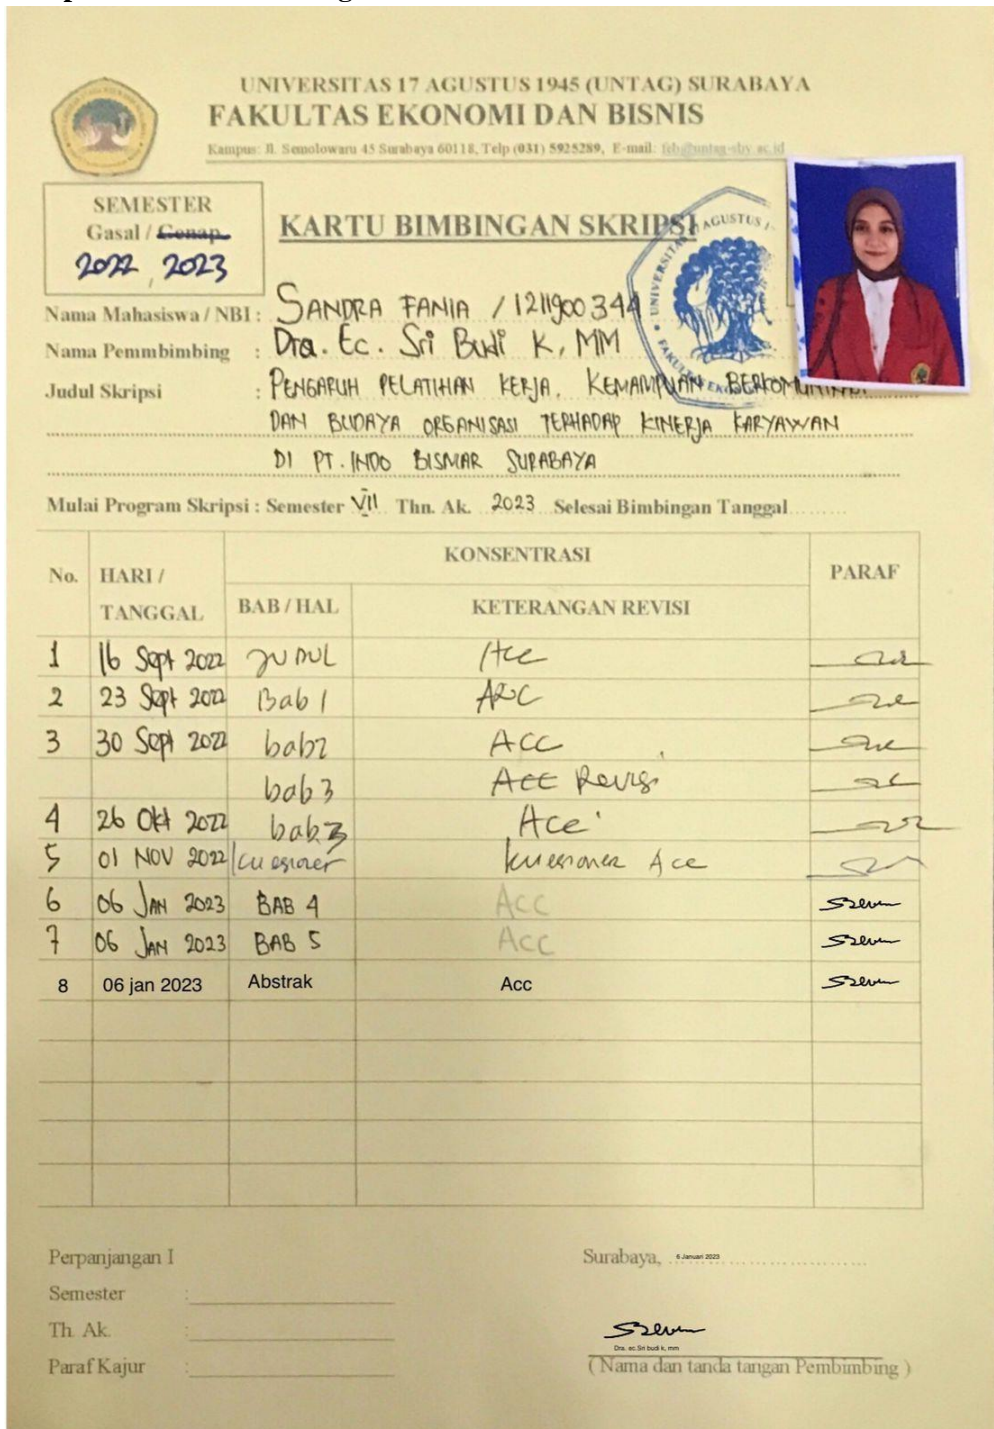 UNIVERSITAS 17 AGUSTUS 1945 (UNTAG) SURABAYA
FAKULTAS EKONOMI DAN BISNIS
Kampus: Jl. Semolowaru 45 Surabaya 60118, Telp (031) 5925289, E-mail: feb@untag-sby.ac.id
SEMESTER
Gasal / Genap
2022, 2023
KARTU BIMBINGAN SKRIPSI
Nama Mahasiswa / NBI : SANDRA FANIA / 1211900344
Nama Pemmbimbing : Dra. Ec. Sri Budi K, MM
Judul Skripsi : PENGARUH PELATIHAN KERJA, KEMAMPUAN BERKOMUNIKASI
DAN BUDAYA ORGANISASI TERHADAP KINERJA KARYAWAN
DI PT. INDO BISMAR SURABAYA
Mulai Program Skripsi : Semester VII Thn. Ak. 2023 Selesai Bimbingan Tanggal
No. HARI / TANGGAL KONSENTRASI PARAF
BAB / HAL KETERANGAN REVISI
1 16 Sept 2022 JUDUL Acc
2 23 Sept 2022 Bab 1 Acc
3 30 Sept 2022 bab2 ACC
bab3 Acc Revisi
4 26 Okt 2022 bab3 Acc
5 01 NOV 2022 kuesioner kuesioner Acc
6 06 JAN 2023 BAB 4 Acc
7 06 JAN 2023 BAB 5 Acc
8 06 jan 2023 Abstrak Acc
Perpanjangan I Surabaya, 6 Januari 2023
Semester :
Th. Ak. :
Dra. ec.Sri budi k, mm
Paraf Kajur : ( Nama dan tanda tangan Pembimbing )